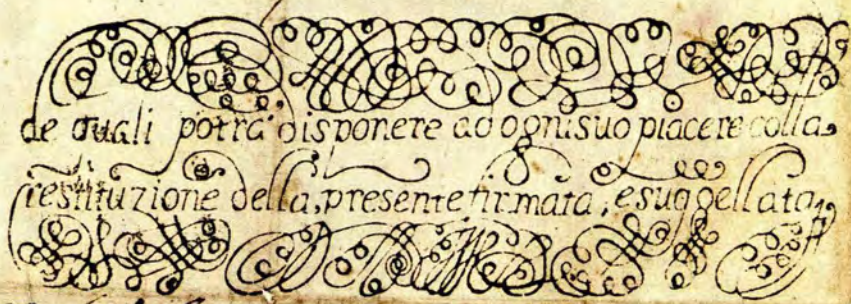 de quali potrà disponere ad ogni suo piacere colla
restituzione della presente firmata, e suggellata,